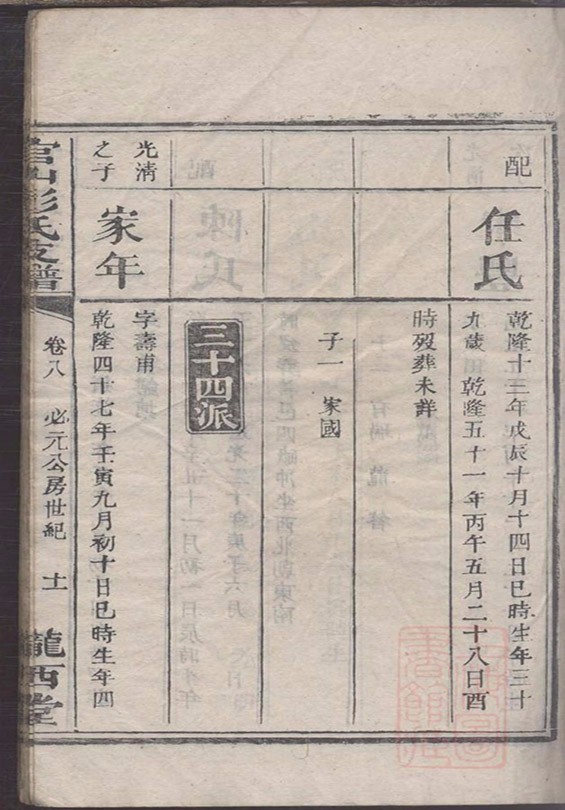 配
任氏
乾隆十三年戊辰十月十四日巳時生年三十
九歲 乾隆五十一年丙午五月二十八日酉
時歿葬未詳
子一 家國
三十四派
光清
之子
家年
字壽甫
乾隆四十七年壬寅九月初十日巳時生年四
官山彭氏支譜
卷八 必元公房世紀 十一
隴西堂